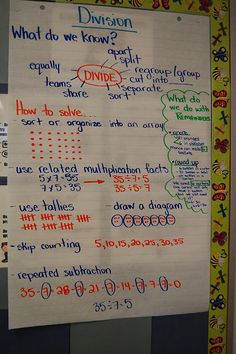 Division
What do we know?
apart
split
equally
regroup/group
DIVIDE
cut into
teams
separate
share
sort
How to solve....
- sort or organize into an array
What do
we do with
Remainders
• ignore
• round up
use related multiplication facts
5x7=35
7x5=35
35÷7=5
35÷5=7
- use tallies
- draw a diagram
- skip counting
5,10,15,20,25,30,35
- repeated subtraction
35-7=28-7=21-7=14-7=7-7=0
35÷7=5